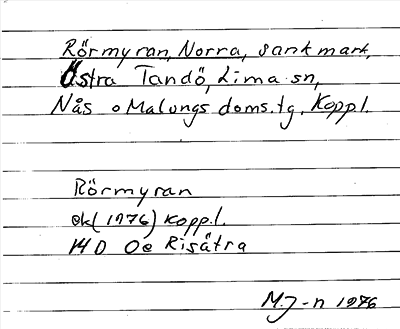 Rörmyran, Norra, sank mark,
Östra Tandö, Lima sn,
Nås o Malungs doms.tg, Koppl.
Rörmyran
ek (1976) Koppl.
14 D 0e Risätra
M.J-n 1976